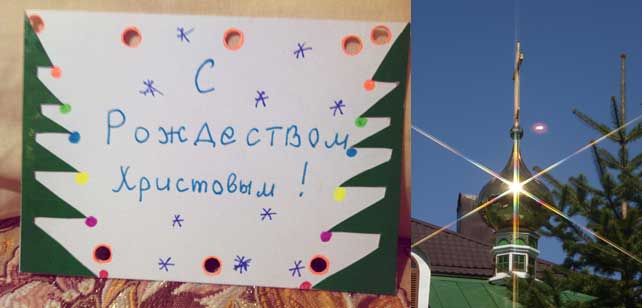 С
Рождеством
Христовым!